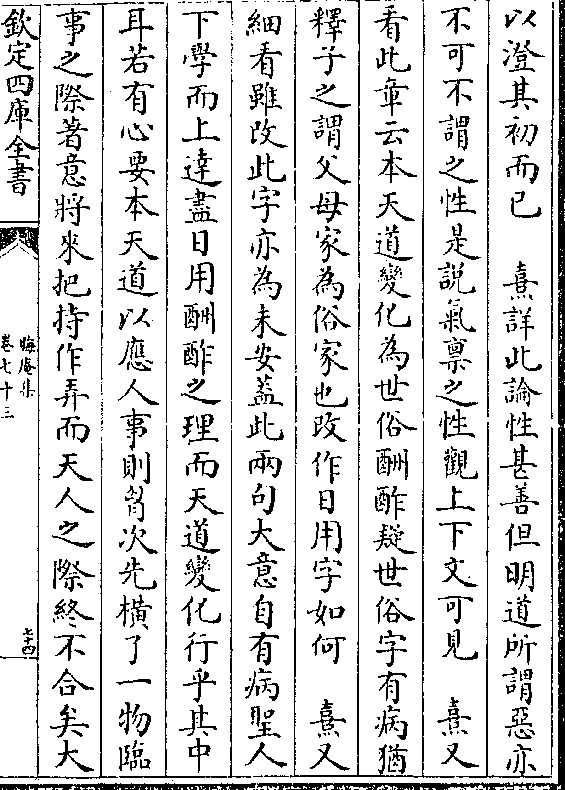 以澄其初而已　熹詳此論性甚善但明道所謂惡亦
不可不謂之性是説氣禀之性觀上下文可見　熹又
看此章云本天道變化為世俗酬酢疑世俗字有病猶
釋子之謂父母家為俗家也改作日用字如何　熹又
細看雖改此字亦為未安蓋此兩句大意自有病聖人
下學而上達盡日用酬酢之理而天道變化行乎其中
耳若有心要本天道以應人事則胷次先橫了一物臨
事之際著意將來把持作弄而天人之際終不合矣大
欽定四庫全書
晦庵集
卷七十三
七十四